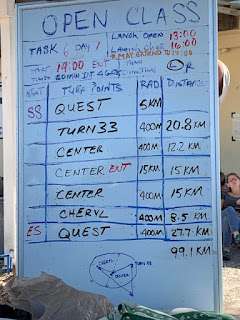 OPEN CLASS
TASK 6 DAY 7
LAUNCH OPEN 13:00
LAUNCH CLOSE 16:00
MAY EXTEND TO 17:00
START 14:00 ENT
TURN POINTS RAD DISTANCE
SS QUEST 5KM
TURN33 400M 20.8 KM
CENTER 400M 12.2 KM
CENTER ENT 15KM 15 KM
CENTER 400M 15 KM
CHERYL 400M 8.5 KM
ES QUEST 400M 27.7 KM
99.1 KM
CHERYL TURN 33
CENTER